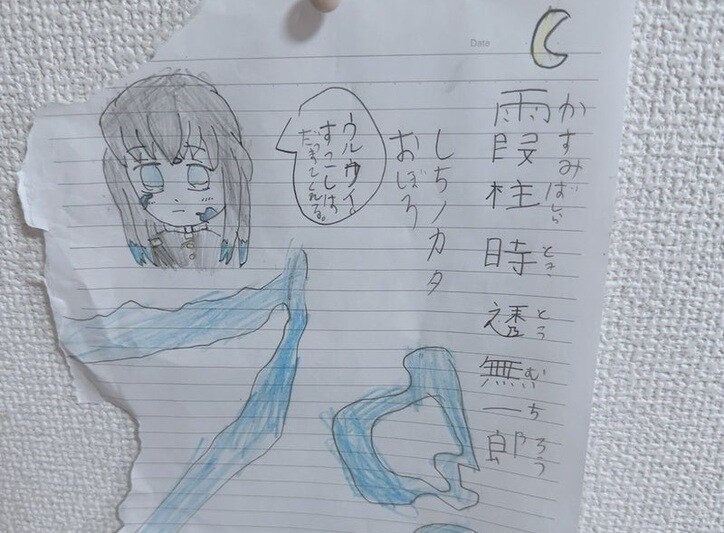 Date
霞柱 時透無一郎
かすみばしら とき とう むいちろう
しちノカタ
おぼろ
ウルサイ。
すこしは
だまってくれる。